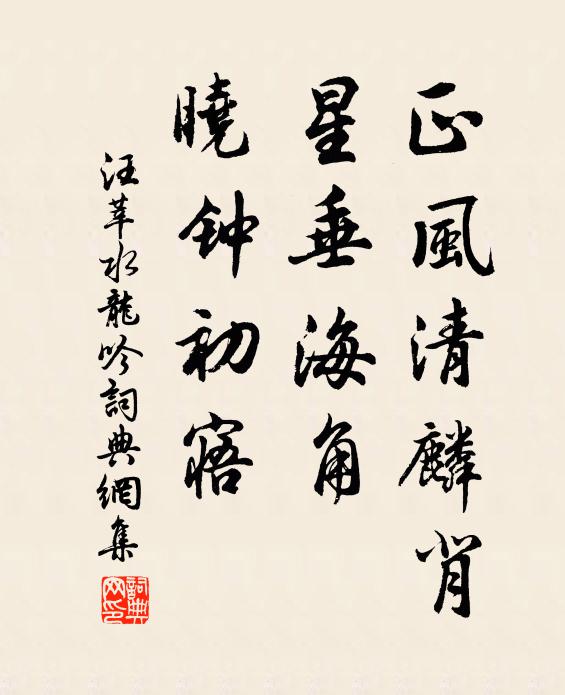 正風清麟背
星垂海角
曉钟初寤
汪莘水龍吟詞典網集
詞典网印